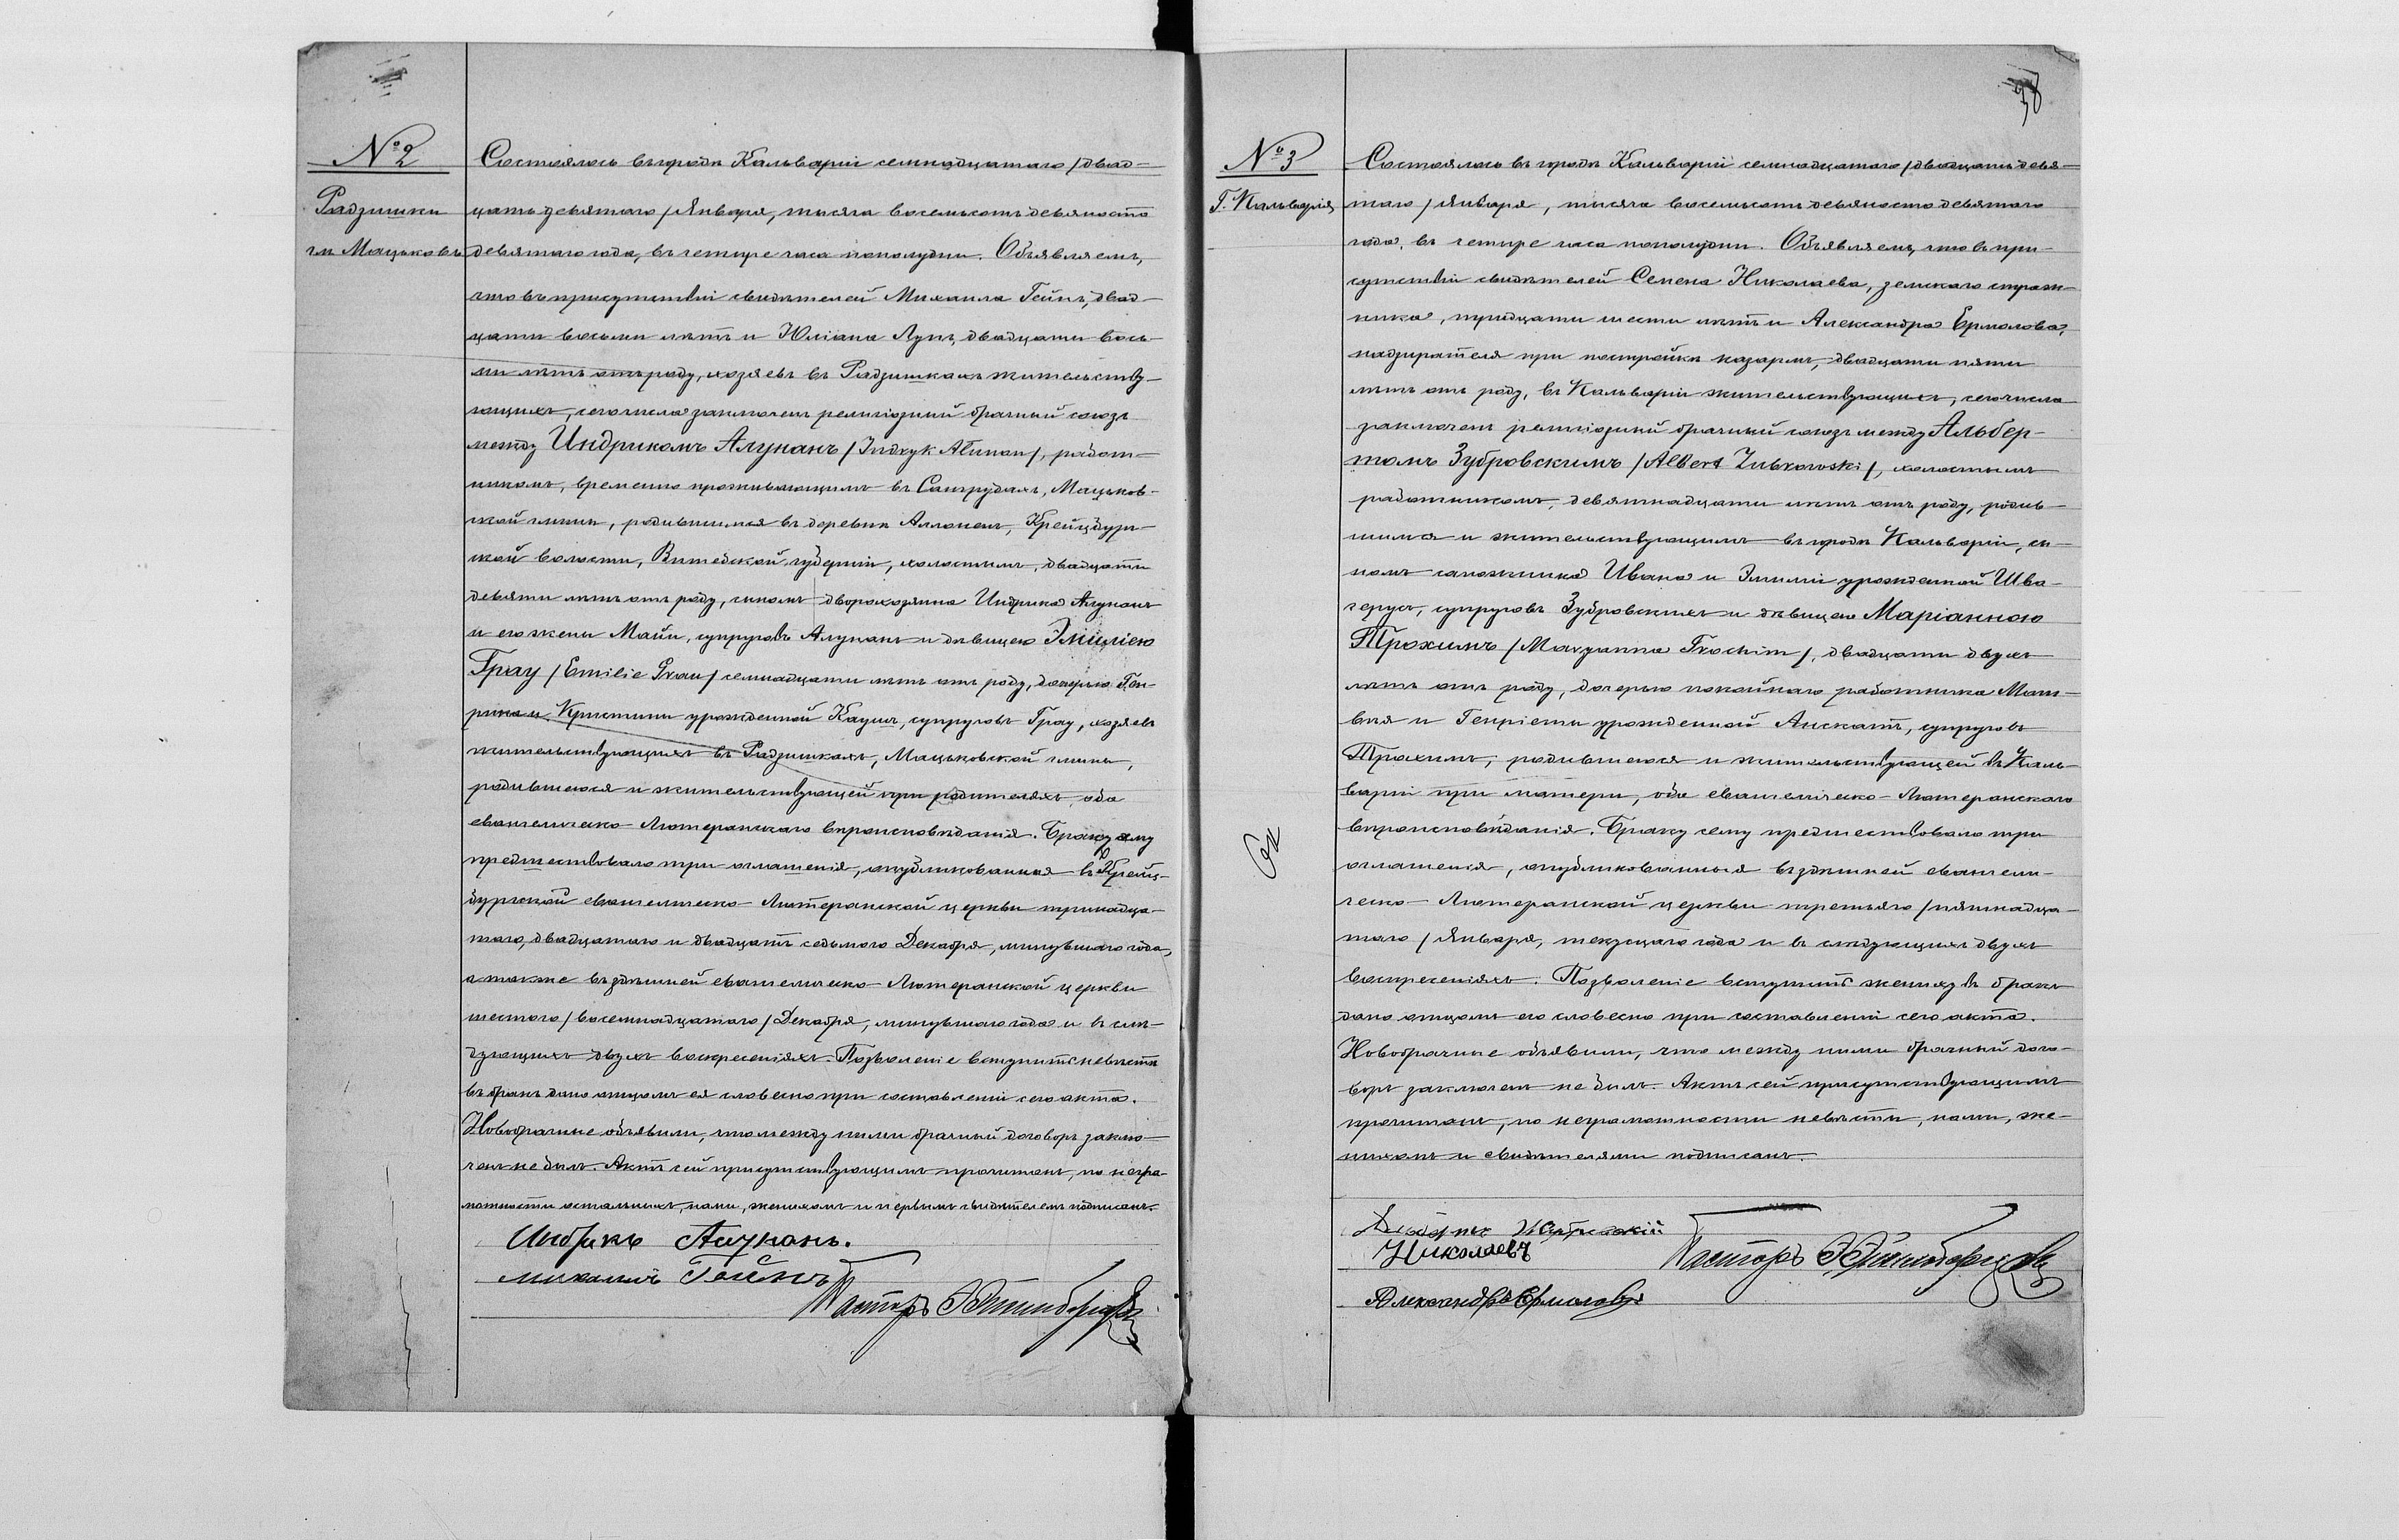 № 2
Радзишки
гм. Мацьковъ
Состоялось въ городѣ Кальваріи семнадцатаго /двад-
цать девятаго/ Января, тысяча восемьсотъ девяносто
девятаго года, въ четыре часа пополудни. Объявляемъ,
что въ присутствіи свидѣтелей Михаила Гейнъ, двад-
цати восьми лѣтъ и Юліана Лунъ, двадцати вось-
ми лѣтъ отъ роду, хозяевъ въ Радзишкахъ жительству-
ющихъ, сего числа заключенъ религіозный брачный союзъ
между Индрикомъ Алунанъ /Indryk Alunan/, работ-
никомъ, временно проживающимъ въ Сангрудахъ, Мацьков-
ской гминѣ, родившимся въ деревнѣ Крейцбург-
ской волости, Витебской губерніи, холостымъ, двадцати
девяти лѣтъ отъ роду, сыномъ дворохозяина Индрика Алунанъ
и его жены Майи, супруговъ Алунанъ и дѣвицею Эмиліею
Грау /Emilie Grau/ семнадцати лѣтъ отъ роду, дочерью Ген-
риха и Кристины урожденной Каушъ, супруговъ Грау, хозяевъ
жительствующихъ въ Радзишкахъ, Мацьковской гмины,
родившеюся и жительствующей при родителяхъ, оба
евангелическо-Лютеранскаго вѣроисповѣданія. Браку сему
предшествовало три оглашенія, опубликованныя въ Крейц-
бургской евангелическо-Лютеранской церкви тринадца-
таго, двадцатаго и двадцать седьмого Декабря, минувшаго года,
а также въ здѣшней евангелическо-Лютеранской церкви
шестого /восемнадцатаго/ Декабря, минувшаго года и въ слѣ-
дующихъ двухъ воскресеніяхъ. Позволеніе вступить невѣстѣ
въ бракъ дано отцомъ ея словесно при составленіи сего акта.
Новобрачные объявили, что между ними брачный договоръ заклю-
ченъ не былъ. Актъ сей присутствующимъ прочитанъ, по негра-
мотности остальныхъ, нами, женихомъ и первымъ свидѣтелемъ подписанъ.
Индрикъ Алунанъ.
Михаилъ Гейнъ
Пасторъ
38
№ 3
Г. Кальварія
Состоялось въ городѣ Кальваріи семнадцатаго /двадцать девя-
таго/ Января, тысяча восемьсотъ девяносто девятаго
года, въ четыре часа пополудни. Объявляемъ, что въ при-
сутствіи свидѣтелей Семена Николаева, земскаго страж-
ника, тридцати шести лѣтъ и Александра Ермолова,
надзирателя при постройкѣ казармъ, двадцати пяти
лѣтъ отъ роду, въ Кальваріи жительствующихъ, сего числа
заключенъ религіозный брачный союзъ между Альбер-
томъ Зубровскимъ /Albert Zubrowski/, холостымъ
работникомъ, девятнадцати лѣтъ отъ роду, родив-
шимся и жительствующимъ въ городѣ Кальваріи, сы-
номъ сапожника Ивана и Эмиліи урожденной Шва-
герусъ, супруговъ Зубровскихъ и дѣвицею Маріанною
Трохимъ /Maryanna Trochim/, двадцати двухъ
лѣтъ отъ роду, дочерью покойнаго работника Мат-
вѣя и Генріеты урожденной Анскатъ, супруговъ
Трохимъ, родившеюся и жительствующей въ Каль-
варіи при матери, оба евангелическо-Лютеранскаго
вѣроисповѣданія. Браку сему предшествовало три
оглашенія, опубликованныя въ здѣшней евангели-
ческо-Лютеранской церкви третьяго /пятнадца-
таго/ Января, текущаго года и въ слѣдующихъ двухъ
воскресеніяхъ. Позволеніе вступить жениху въ бракъ
дано отцомъ его словесно при составленіи сего акта.
Новобрачные объявили, что между ними брачный дого-
воръ заключенъ не былъ. Актъ сей присутствующимъ
прочитанъ, по неграмотности невѣсты, нами, же-
нихомъ и свидѣтелями подписанъ.
Николаевъ
Пасторъ
Александръ Ермоловъ